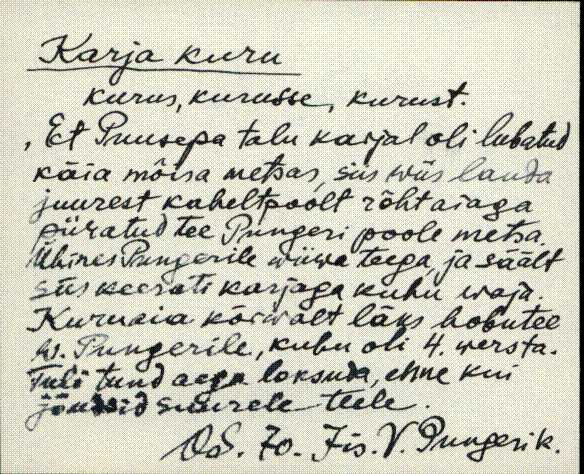 Karja kuru
kurus, kurusse, kurust.
, Et Puusepa talu karjal oli lubatud
käia mõisa metsas, siis wiis lauda
juurest kaheltpoolt rõhtaiaga
piiratud tee Pungeri poole metsa.
Ühines Pungerile wiiwa teega, ja säält
siis keerati karjaga kuhu waja.
Kuruaia kõrwalt läks hobutee
w. Pungerile, kuhu oli 4. wersta.
Tuli tund aega loksuda, enne kui
jõudsid suurele teele.
Jis. V. Pungerik.